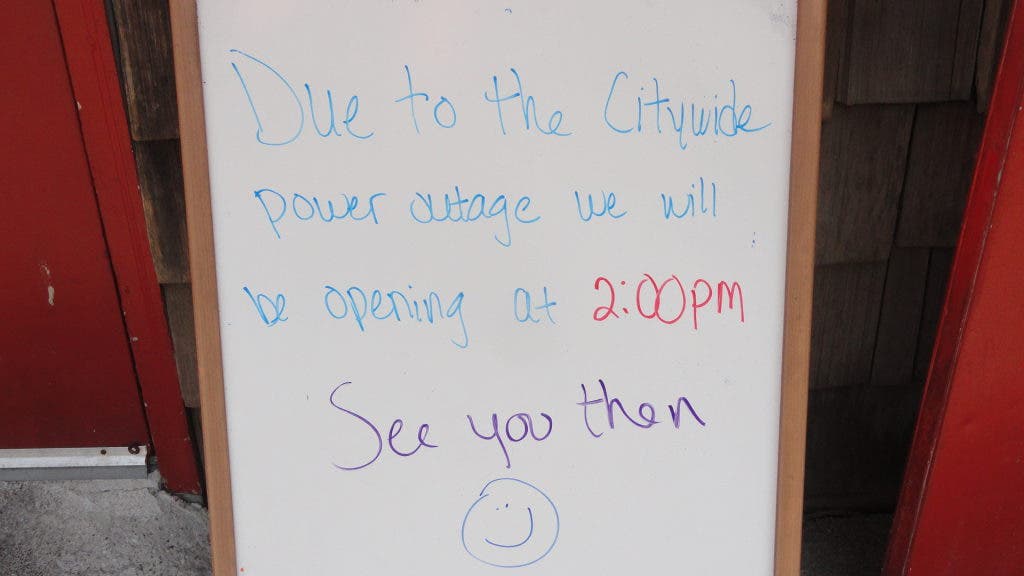 Due to the Citywide
power outage we will
be opening at 2:00pm
See you then